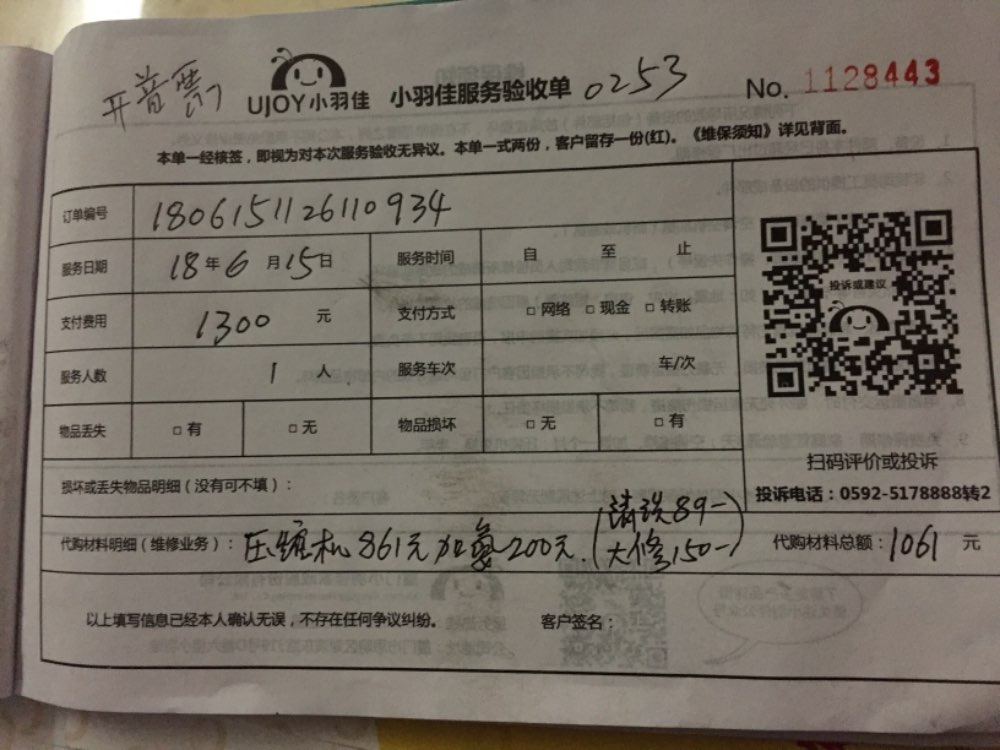 开普票 UJOY小羽佳 小羽佳服务验收单 0253 No. 1128443
本单一经核签，即视为对本次服务验收无异议。本单一式两份，客户留存一份(红)。《维保须知》详见背面。
订单编号 180615112611 0934
服务日期 18年6月15日 服务时间 自 至 止
投诉或建议
支付费用 1300 元 支付方式 □网络 □现金 □转账
服务人数 1 人 服务车次 车/次
物品丢失 □有 □无 物品损坏 □无 □有
扫码评价或投诉
损坏或丢失物品明细（没有可不填）：
投诉电话：0592-5178888转2
代购材料明细（维修业务）：压缩机861元加氨200元.（清洗89一 大修150一） 代购材料总额：1061 元
以上填写信息已经本人确认无误，不存在任何争议纠纷。 客户签名：